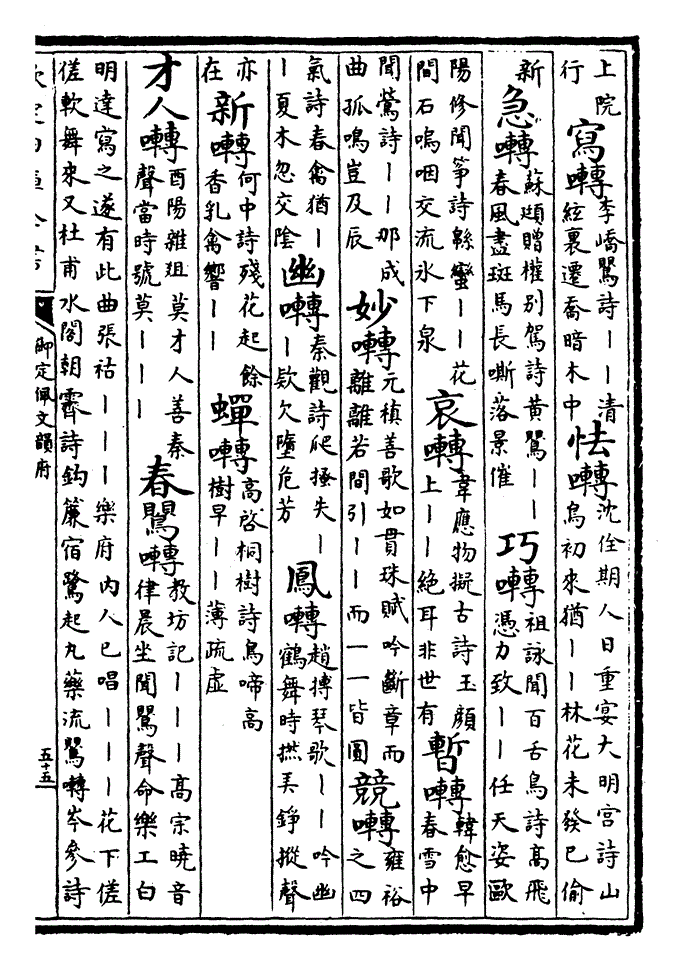 上院行寫囀李嶠鸎詩丨丨清絃裏遷喬暗木中怯囀沈佺期人日重宴大明宫詩山鳥初來猶丨丨林花未發已偷
新急囀蘇頲贈權别駕詩黃鸎丨丨春風盡斑馬長嘶落景催巧囀祖詠聞百舌鳥詩高飛憑力致丨丨任天姿歐
陽修聞箏詩緜蠻丨丨花間石嗚咽交流氷下泉哀囀韋應物擬古詩玉顔上丨丨絶耳非世有暫囀韓愈早春雪中
聞鶯詩丨丨那成曲孤鳴豈及辰妙囀元稹善歌如貫珠賦吟斷章而離離若間引丨丨而一一皆圓競囀雍裕之四
氣詩春禽猶丨丨夏木忽交陰幽囀秦觀詩爬搔失丨丨欵欠墮危芳鳳囀趙摶琴歌丨丨吟幽鶴舞時撚弄錚摐聲
亦在新囀何中詩殘花起餘香乳禽響丨丨蟬囀高啓桐樹詩鳥啼高樹早丨丨薄疏虛
才人囀酉陽雜俎莫才人善秦聲當時號莫丨丨丨春鸎囀教坊記丨丨丨高宗曉音律晨坐聞鸎聲命樂工白
明達寫之遂有此曲張祜丨丨丨樂府内人已唱丨丨丨花下傞傞軟舞來又杜甫水閣朝霽詩鈎簾宿鷺起丸藥流鸎囀岑參詩
欽定四庫全書
御定佩文韻府
五十五